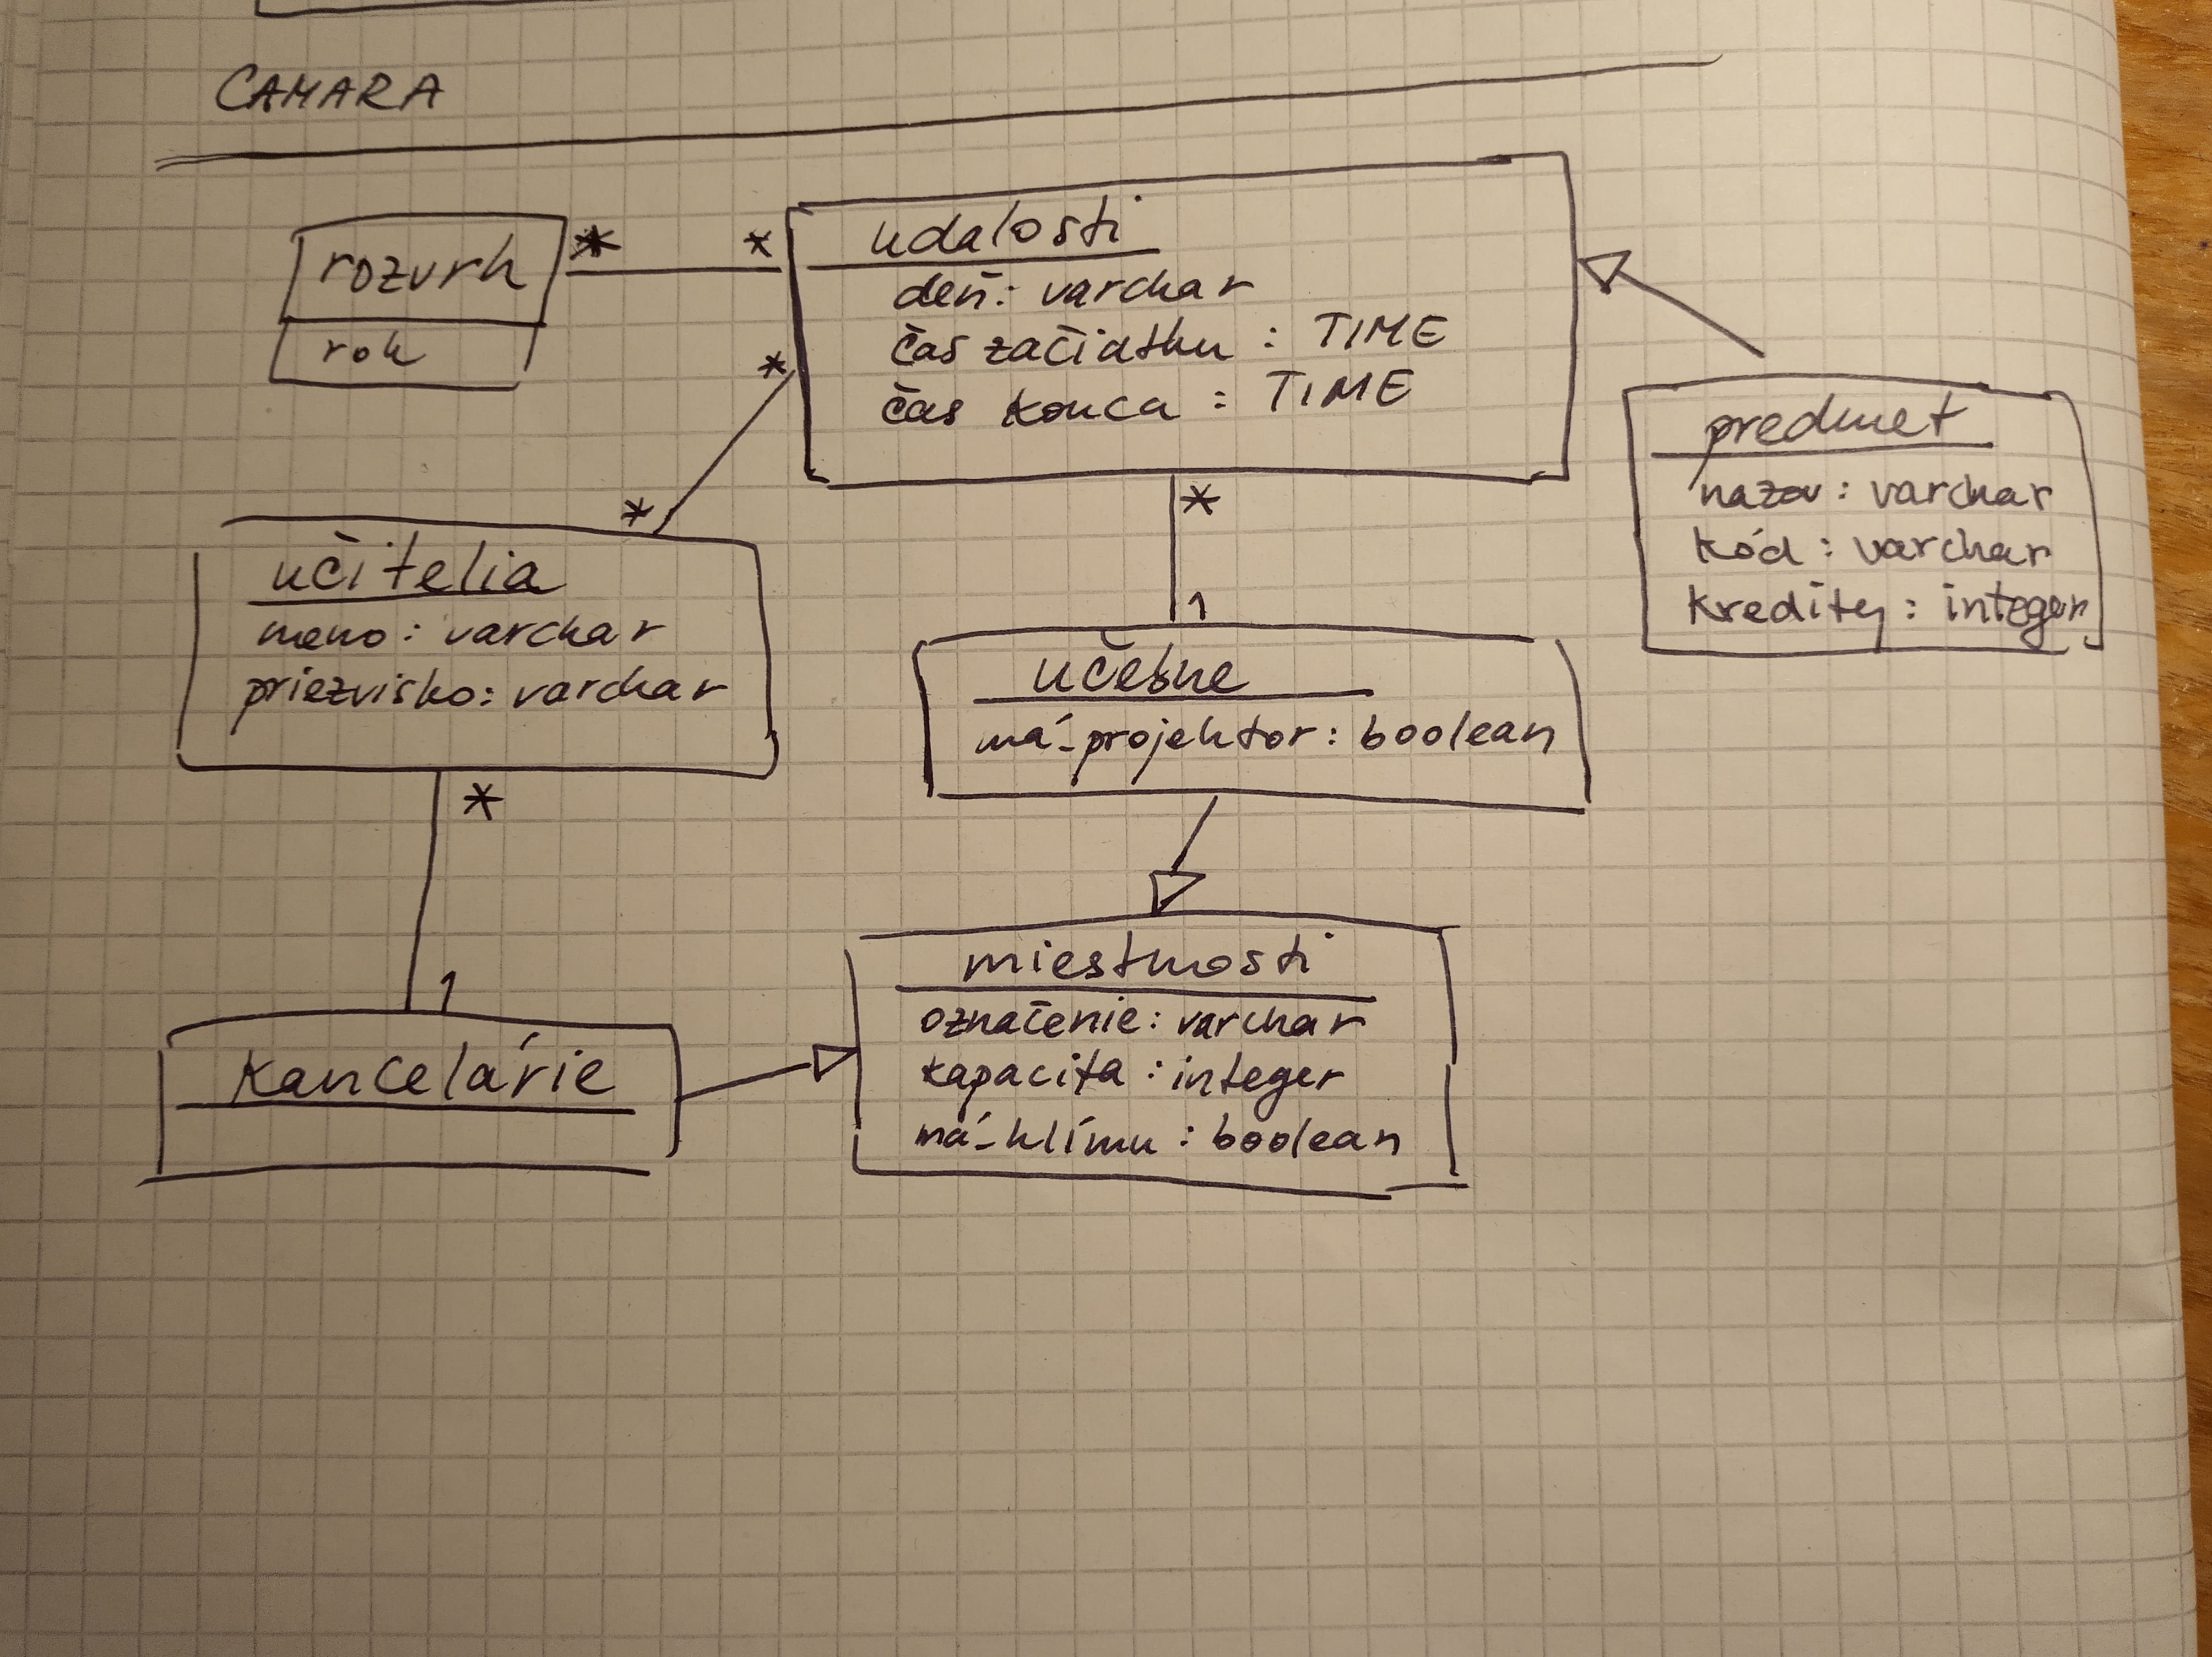 CAMARA
rozvrh
rok
* *
udalosti
deň: varchar
čas začiatku : TIME
čas konca : TIME
* *
predmet
nazov : varchar
kód : varchar
kredity : integer
učitelia
meno : varchar
priezvisko : varchar
* 1
učebne
má_projektor : boolean
* 1
kancelárie
miestnosti
označenie : varchar
kapacita : integer
má_klímu : boolean